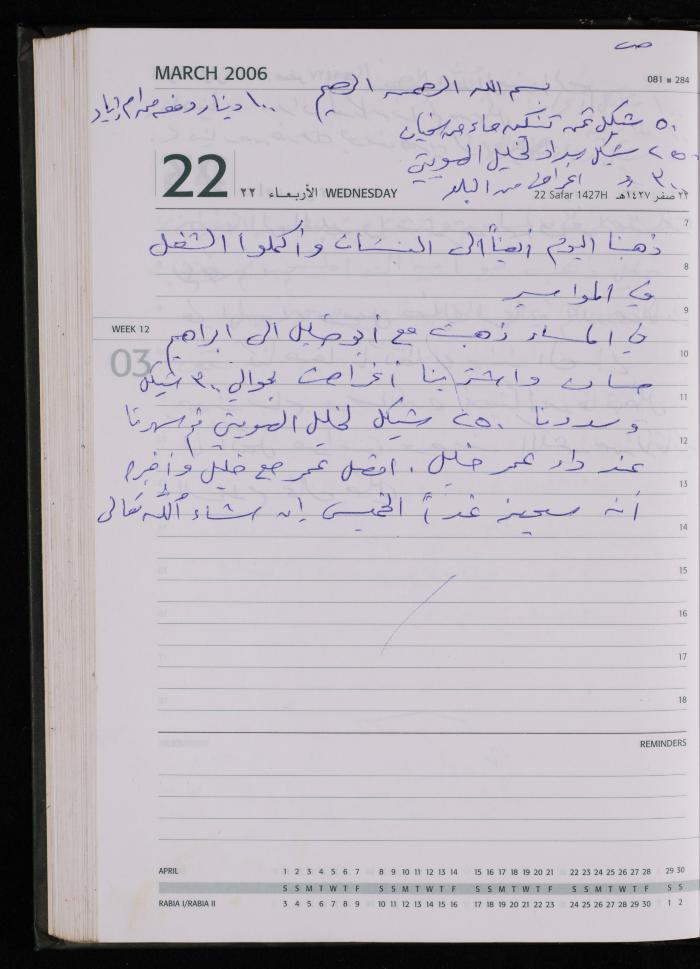 صـ
MARCH 2006
081 ■ 284
بسم الله الرحمن الرحيم
١٠٠ دينار دفعه من ام زياد
٥٠ شيكل ثمن تنكين ماء من
٢٥٠ شيكل سداد لخليل الصويتي
٣٠٠ " اغراض من البلد
22 ٢٢ الأربعاء WEDNESDAY
22 Safar 1427H ٢٢ صفر ١٤٢٧هـ
7
ذهبنا اليوم أيضاً الى البنشات وأكملوا الشغل
8
في المواسير
9
WEEK 12
في المساء ذهبت مع أبو خليل الى ابراهيم
10
03
واشترينا أغراض بحوالي ٣٠٠ شيكل
11
وسددنا ٢٥٠ شيكل لخليل الصويتي ثم سهرنا
12
عند دار عمر خليل. اتصل عمر مع خليل وأخبره
13
أنه سيجيء غداً الخميس إن شاء الله تعالى
14
15
16
17
18
REMINDERS
APRIL 1 2 3 4 5 6 7 8 9 10 11 12 13 14 15 16 17 18 19 20 21 22 23 24 25 26 27 28 29 30
S S M T W T F S S M T W T F S S M T W T F S S M T W T F S S
RABIA I/RABIA II 3 4 5 6 7 8 9 10 11 12 13 14 15 16 17 18 19 20 21 22 23 24 25 26 27 28 29 30 1 2